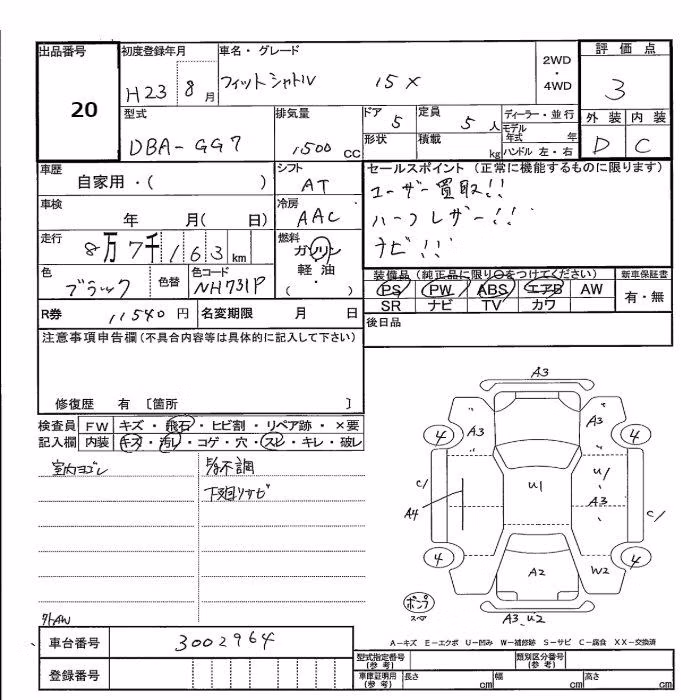 出品番号 初度登録年月 車名・グレード 評価点
20 H23 8月 フィットシャトル 15X 2WD・4WD 3
型式 排気量 ドア 定員 ディーラー・並行 外装 内装
DBA-GG7 1500 CC 5 5人 モデル年式 年 D C
形状 積載 kg ハンドル 左・右
車歴 シフト セールスポイント (正常に機能するものに限ります)
自家用・( ) AT ユーザー買取!!
車検 冷房 ハーフレザー!!
年 月( 日) AAC ナビ!!!
走行 燃料
8万7千163km ガソリン
軽・油
( )
色 色替 色コード 装備品(純正品に限り○をつけてください) 新車保証書
ブラック NH731P PS PW ABS エアB AW 有・無
SR ナビ TV カワ
R券 11540円 名変期限 月 日 後日品
注意事項申告欄(不具合内容等は具体的に記入して下さい)
修復歴 有 [箇所 ]
検査員 FW キズ・飛石・ヒビ割・リペア跡・×要
記入欄 内装 キズ・汚レ・コゲ・穴・スレ・キレ・破レ
室内ヨゴレ
下廻りサビ
A3
4 A3 A3 4
C/ A4 U1 U/ A3 C/
4 A2 W2 4
ポンプ
スペア
A3.U2
社外AW
A-キズ E-エクボ U-凹み W-補修跡 S-サビ C-腐食 XX-交換済
車台番号 3002964
登録番号
型式指定番号(参考) 類別区分番号(参考)
車庫証明用(参考) 長さ cm 幅 cm 高さ cm